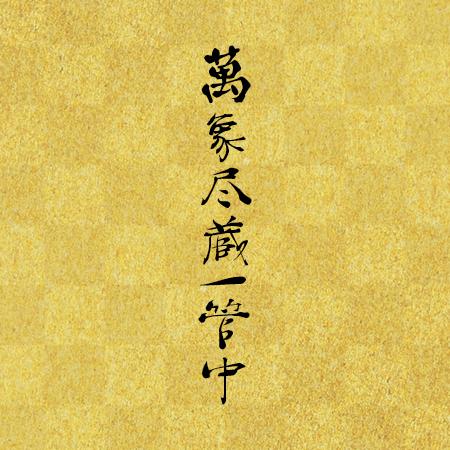 萬象尽蔵一管中